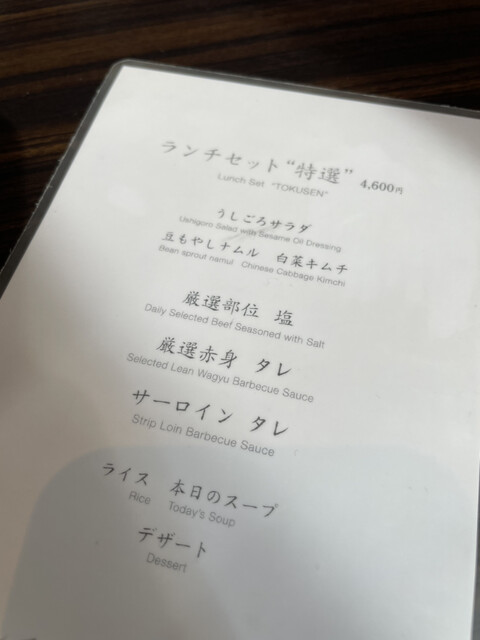 ランチセット“特選” 4,600円
Lunch Set "TOKUSEN"
うしごろサラダ
Ushigoro Salad with Sesame Oil Dressing
豆もやしナムル 白菜キムチ
Bean sprout namul Chinese Cabbage Kimchi
厳選部位 塩
Daily Selected Beef Seasoned with Salt
厳選赤身 タレ
Selected Lean Wagyu Barbecue Sauce
サーロイン タレ
Strip Loin Barbecue Sauce
ライス 本日のスープ
Rice Today's Soup
デザート
Dessert